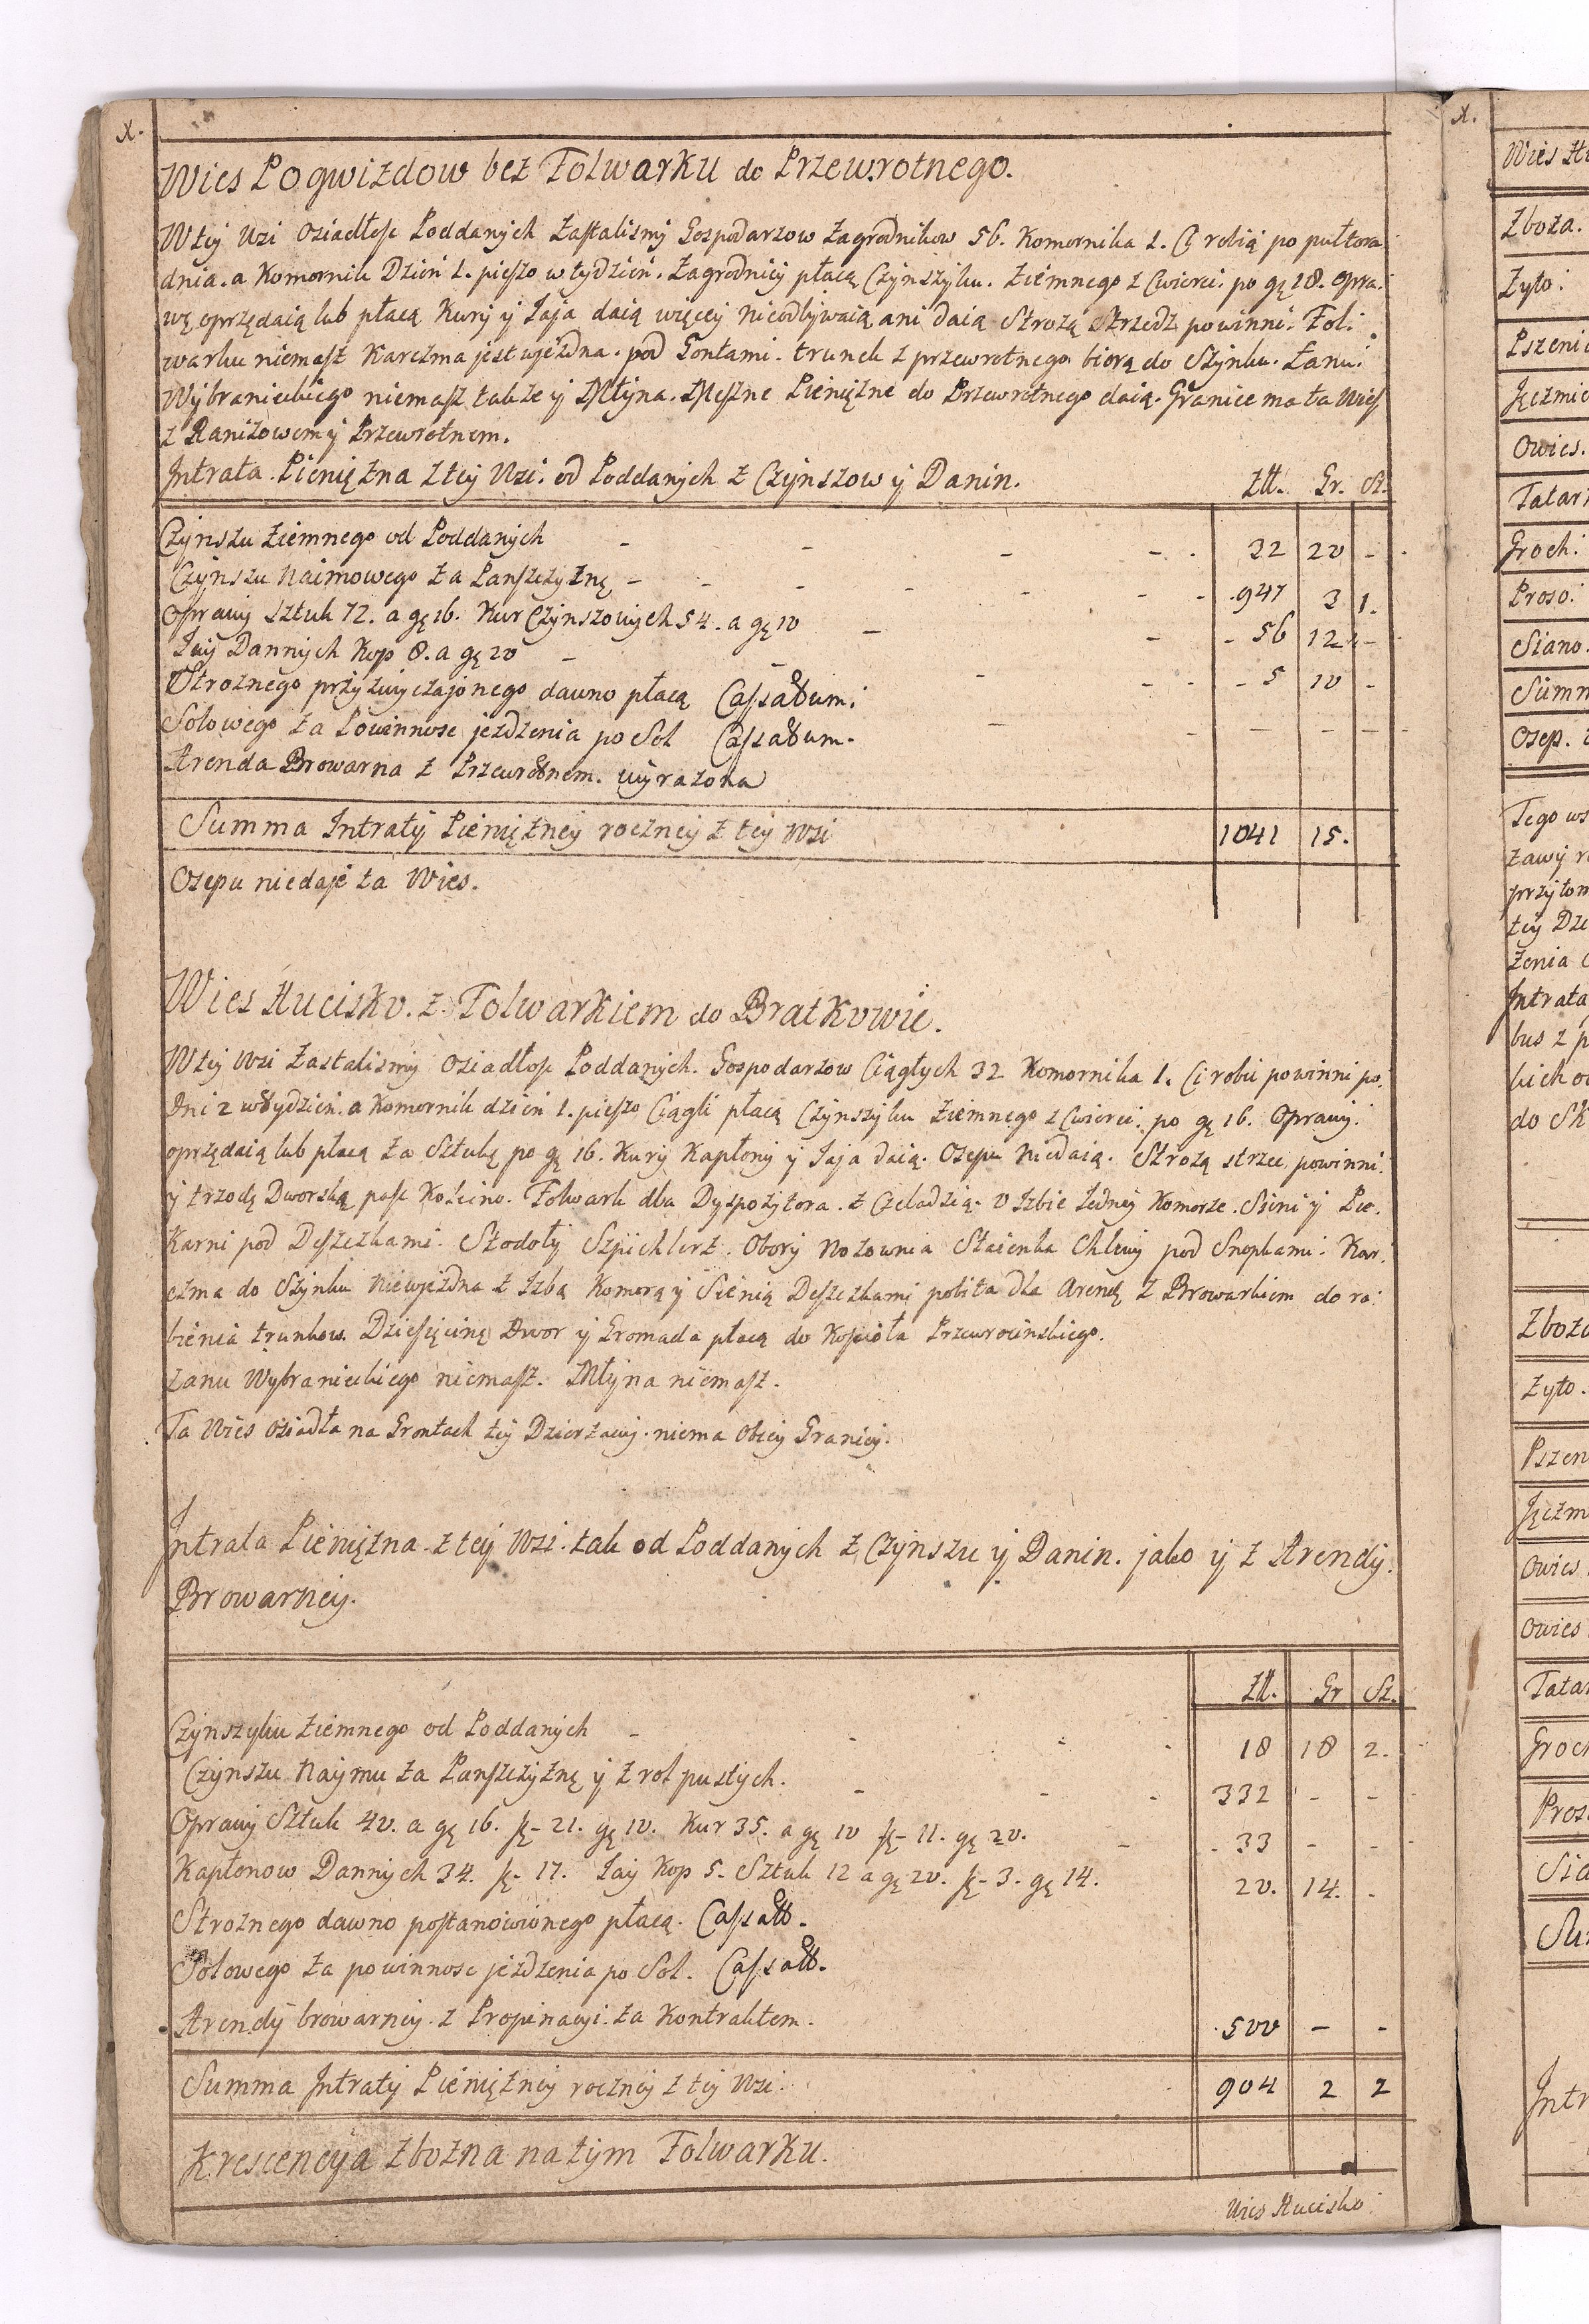 X.
Wies Pogwizdow bez Folwarku do Przewrotnego.
W tej Wsi Osiadłosc Poddanych Zastalismy Gospodarzow Zagrodnikow 56. Komornika 1. Ci robią po pułtora
dnia. a Komornik Dzień 1. pieszo w tydzień. Zagrodnicy płacą Czynszyku. Ziemnego z Cwierci. po gę 18. Opra:
wę oprzędaią lub płacą Kury y Jaja daią więcey nieodbywaią ani daią Strozą Strzedz powinni. Fol:
warku niemasz Karczma jest wjezdna. pod Gontami. trunek z przewrotnego biorą do Szynku. Łanu:
Wybranieckiego niemasz takze y Młyna. Meszne Pieniężne do Przewrotnego daią. Granice ma ta Wieś
z Ranizowem y Przewrotnem.
Jntrata. Pieniężna z tey Wsi. od Poddanych z Czynszow y Danin. Złł. Gr. Sz.
Czynszu Ziemnego od Poddanych - - - - . 22 20 -
Czynszu Naimowego za Panszczyznę - - - - - - - . 947 3 1.
Oprawy Sztuk 72. a gę 16. Kur Czynszowych 54. a gę 10 - - - 56 12 -
Jay Dannych Kop 8. a gę 20 - - - - - - 5 10 -
Stroznego przyzwyczajonego dawno płacą Cassatum:
Solowego za Powinnosc jezdzenia po Sol Cassatum. - - - - -
Arenda Browarna z Przewrotnem. wyrazona
Summa Jntraty Pieniężney roczney z tey Wsi 1041 15.
Osepu niedaje ta Wies.
Wies Hucisko. z. Folwarkiem do Bratkowic.
W tey Wsi Zastalismy Osiadłosc Poddanych. Gospodarzow Ciągłych 32 Komornika 1. Ci robic powinni po.
Dni 2 w tydzień. a Komornik dzień 1. pieszo Ciągli płacą Czynszyku Ziemnego z Cwierci. po gę 16. Oprawy.
oprzędaią lub płacą za Sztukę po gę 16. Kury Kapłony y Jaja daią. Osepu niedaią. Strozą strzec powinni.
y trzodę Dworską pasc Koleino. Folwark dla Dyspozytora. z Czeladzią. o Jzbie Jedney Komorze. Sieni y Pie.
Karni pod Deszczkami. Stodoły Szpichlerz. Obory Wozownia Staienka Chlewy pod Snopkami. Kar:
czma do Szynku Niewjezdna z Jzbą Komorą y Sienią Deszczkami pobita dla Arendę z Browarkiem do ro:
bienia trunkow. Dziesięcinę Dwor y Gromada płacą do Kościoła Przewrocinskiego.
Łanu Wybranieckiego niemasz. Młyna niemasz.
Ta Wies osiadła na Grontach tey Dzierzawy. niema Obcey Granicy.
Jntrata Pieniężna. z tey Wsi. tak od Poddanych z Czynszu y Danin. jako y z Arendy.
Browarney.
Złł. Gr Sz.
Czynszyku Ziemnego od Poddanych - - - - 18 18 2.
Czynszu Naymu za Panszczyznę y z rol pustych. - - - 332 - -
Oprawy Sztuk 40. a gę 16. fę- 21. gę 10. Kur 35. a gę 10 fę- 11. gę 20. - 33 - -
Kapłonow Dannych 34. fę- 17. Jay Kop 5. Sztuk 12 a gę 20. fę- 3. gę 14. 20. 14. -
Stroznego dawno postanowionego płacą. Cassatt.
Solowego za powinnosc jezdzenia po Sol. Cassatt.
Arendy browarney. z Propinacyi. za Kontraktem. 500 - -
Summa Jntraty Pieniężney roczney z tey Wsi. 904 2 2
Krescencya Zbozna na tym Folwarku.
Wies Hucisko
X.
Zboza.
Zyto.
Owies.
Groch:
Proso:
Siano.
Osep.
Tego
przytom
tey
Jntrata
do
Zyto.
Owies
Owies